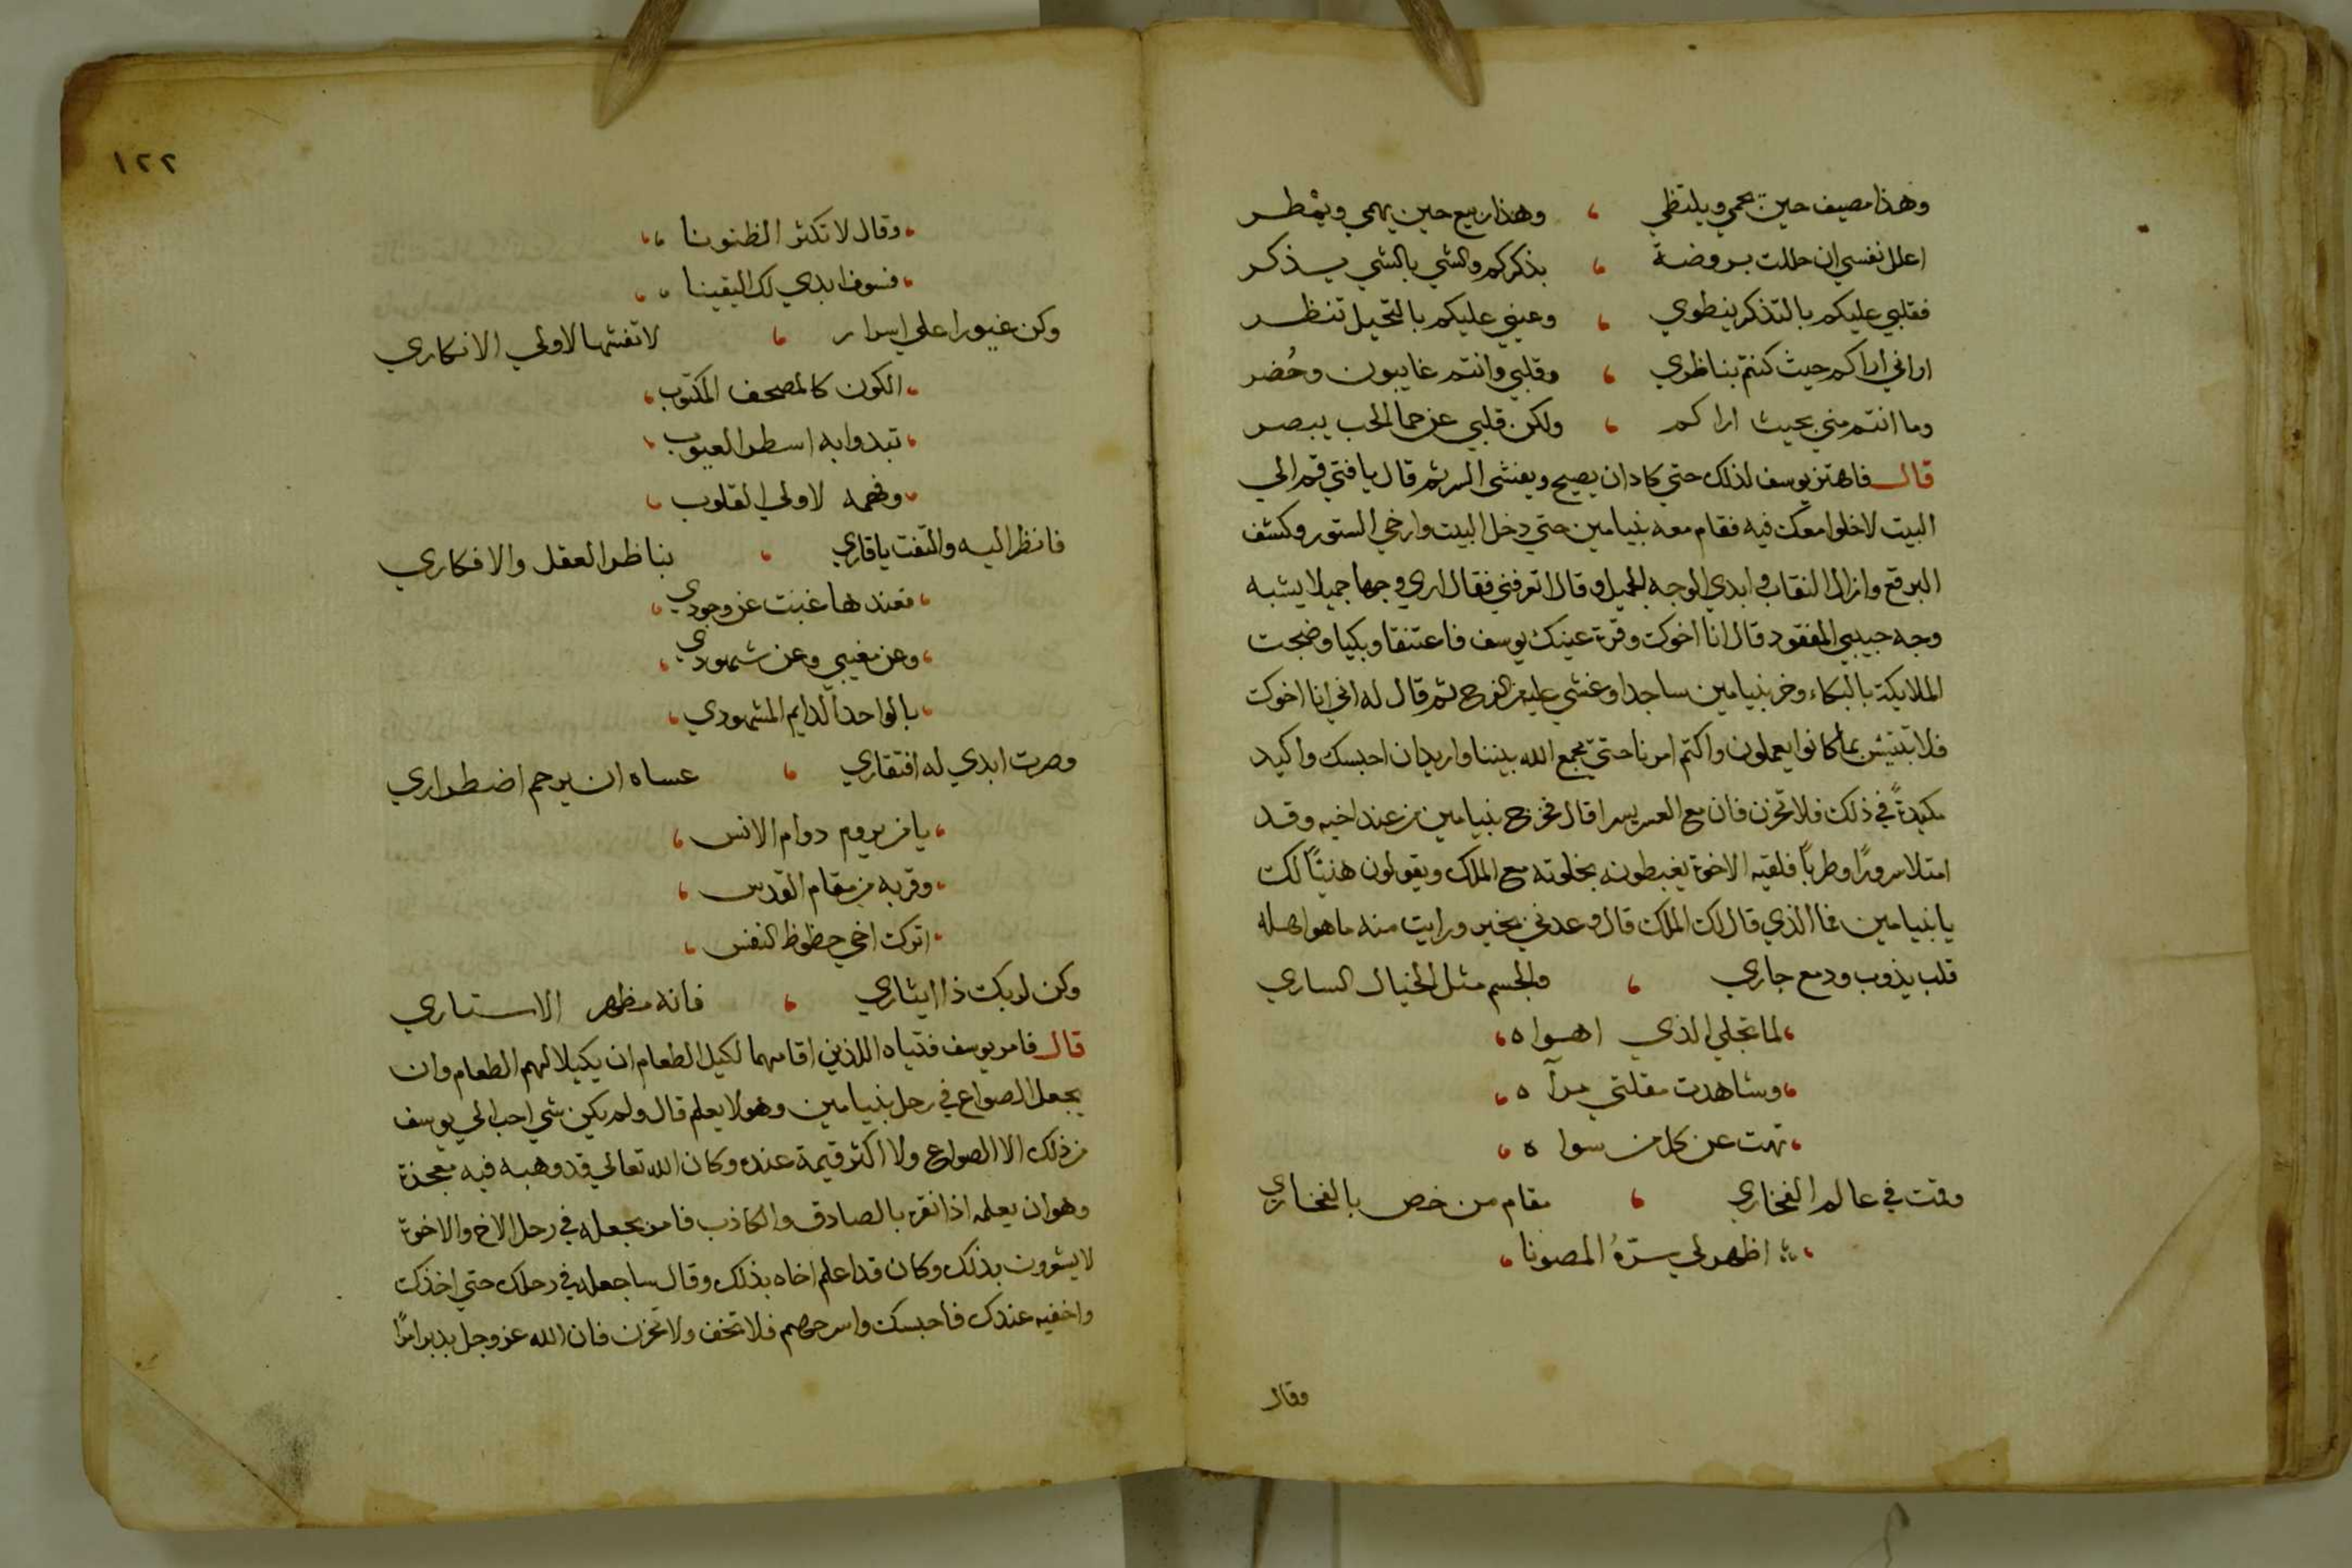 وهذا مصيف حين يحمي ويلتظي ، وهذا ربيع حين يهمي ويمطر
اعلل نفسي ان حللت بروضة ، بذكركم والشي بالشي يذكر
فقلبي عليكم بالتذكر ينطوي ، وعيني عليكم بالتخيل تنظر
اراني اراكم حيث كنتم بناظري ، وقلبي وانتم غايبون وحُضر
وما انتم مني بحيث اراكم ، ولكن قلبي عن حما الحب يبصر
قال فاهتز يوسف لذلك حتي كاد ان يصيح ويفشي السر ثم قال يا فتي قم الي
البيت لاخلوا معك فيه فقام معه بنيامين حتي دخل البيت وارخي الستور وكشف
البرقع وازال النقاب وابدي الوجه الجميل وقال اتعرفني فقال اري وجها جميلا يشبه
وجه حبيبي المفقود قال انا اخوك وقرة عينك يوسف فاعتنقا وبكيا وضجت
الملايكة بالبكاء وخر بنيامين ساجدا وغشي عليه من الفرح ثم قال له اني انا اخوك
فلا تبتيس بما كانوا يعملون واكتم امرنا حتي يجمع الله بيننا واريد ان احبسك واكيد
مكيدةً في ذلك فلا تحزن فان مع العسر يسرا قال فخرج بنيامين من عند اخيه وقد
امتلا سرورًا وطربًا فلقيه الاخوة يغبطونه بخلوته مع الملك ويقولون هنيئًا لك
يا بنيامين فما الذي قال لك الملك قال وعدني بخير ورايت منه ما هو اهله
قلب يذوب ودمع جاري ، والجسم مثل الخيال الساري
، لما تجلي الذي اهواه ،
، وشاهدت مقلتي مرآه ،
، تهت عن كل من سواه ،
وقت في عالم الفخاري ، مقام من خص بالفخاري
، اظهر لي سرّهُ المصونا ،
وقال
١٢٢
، وقال لا تكثر الظنونا ،،
، فسوف ابدي لك اليقينا ،،
وكن غيورا علي اسرار ، لا تفشها لاولي الانكاري
، الكون كالمصحف المكتوب ،
، تبدوا به اسطر الغيوب ،
، وفهمه لاولي القلوب ،
فانظر اليه والتفت يا قاري ، بناظر العقل والافكاري
، فعندها غبت عن وجودي ،
، وعن مغيبي وعن شهودي ،
، بالواحد الدايم المشهودي ،
وصرت ابدي له افتقاري ، عساه ان يرحم اضطراري
، يا من يروم دوام الانس ،
، وقربه من مقام القدس ،
، اترك اخي حظوظ النفس ،
وكن لربك ذا ايثاري ، فانه مظهر الاستاري
قال فامر يوسف فتياه اللذين اقامهما لكيل الطعام ان يكيلا لهم الطعام وان
يجعل الصواع في رحل بنيامين وهو لا يعلم قال ولم يكن شي احب الي يوسف
من ذلك الا الصواع ولا اكثر قيمة عنده وكان الله تعالي قد وهبه فيه معجزة
وهو ان يعلمه اذا نقره بالصادق والكاذب فامر بجعله في رحل الاخ والاخوة
لا يشعرون بذلك وكان قد اعلم اخاه بذلك وقال ساجعله في رحلك حتي اخذك
واخفيه عندك فاحبسك واسرحهم فلا تخف ولا تحزن فان الله عز وجل يدبر امرًا